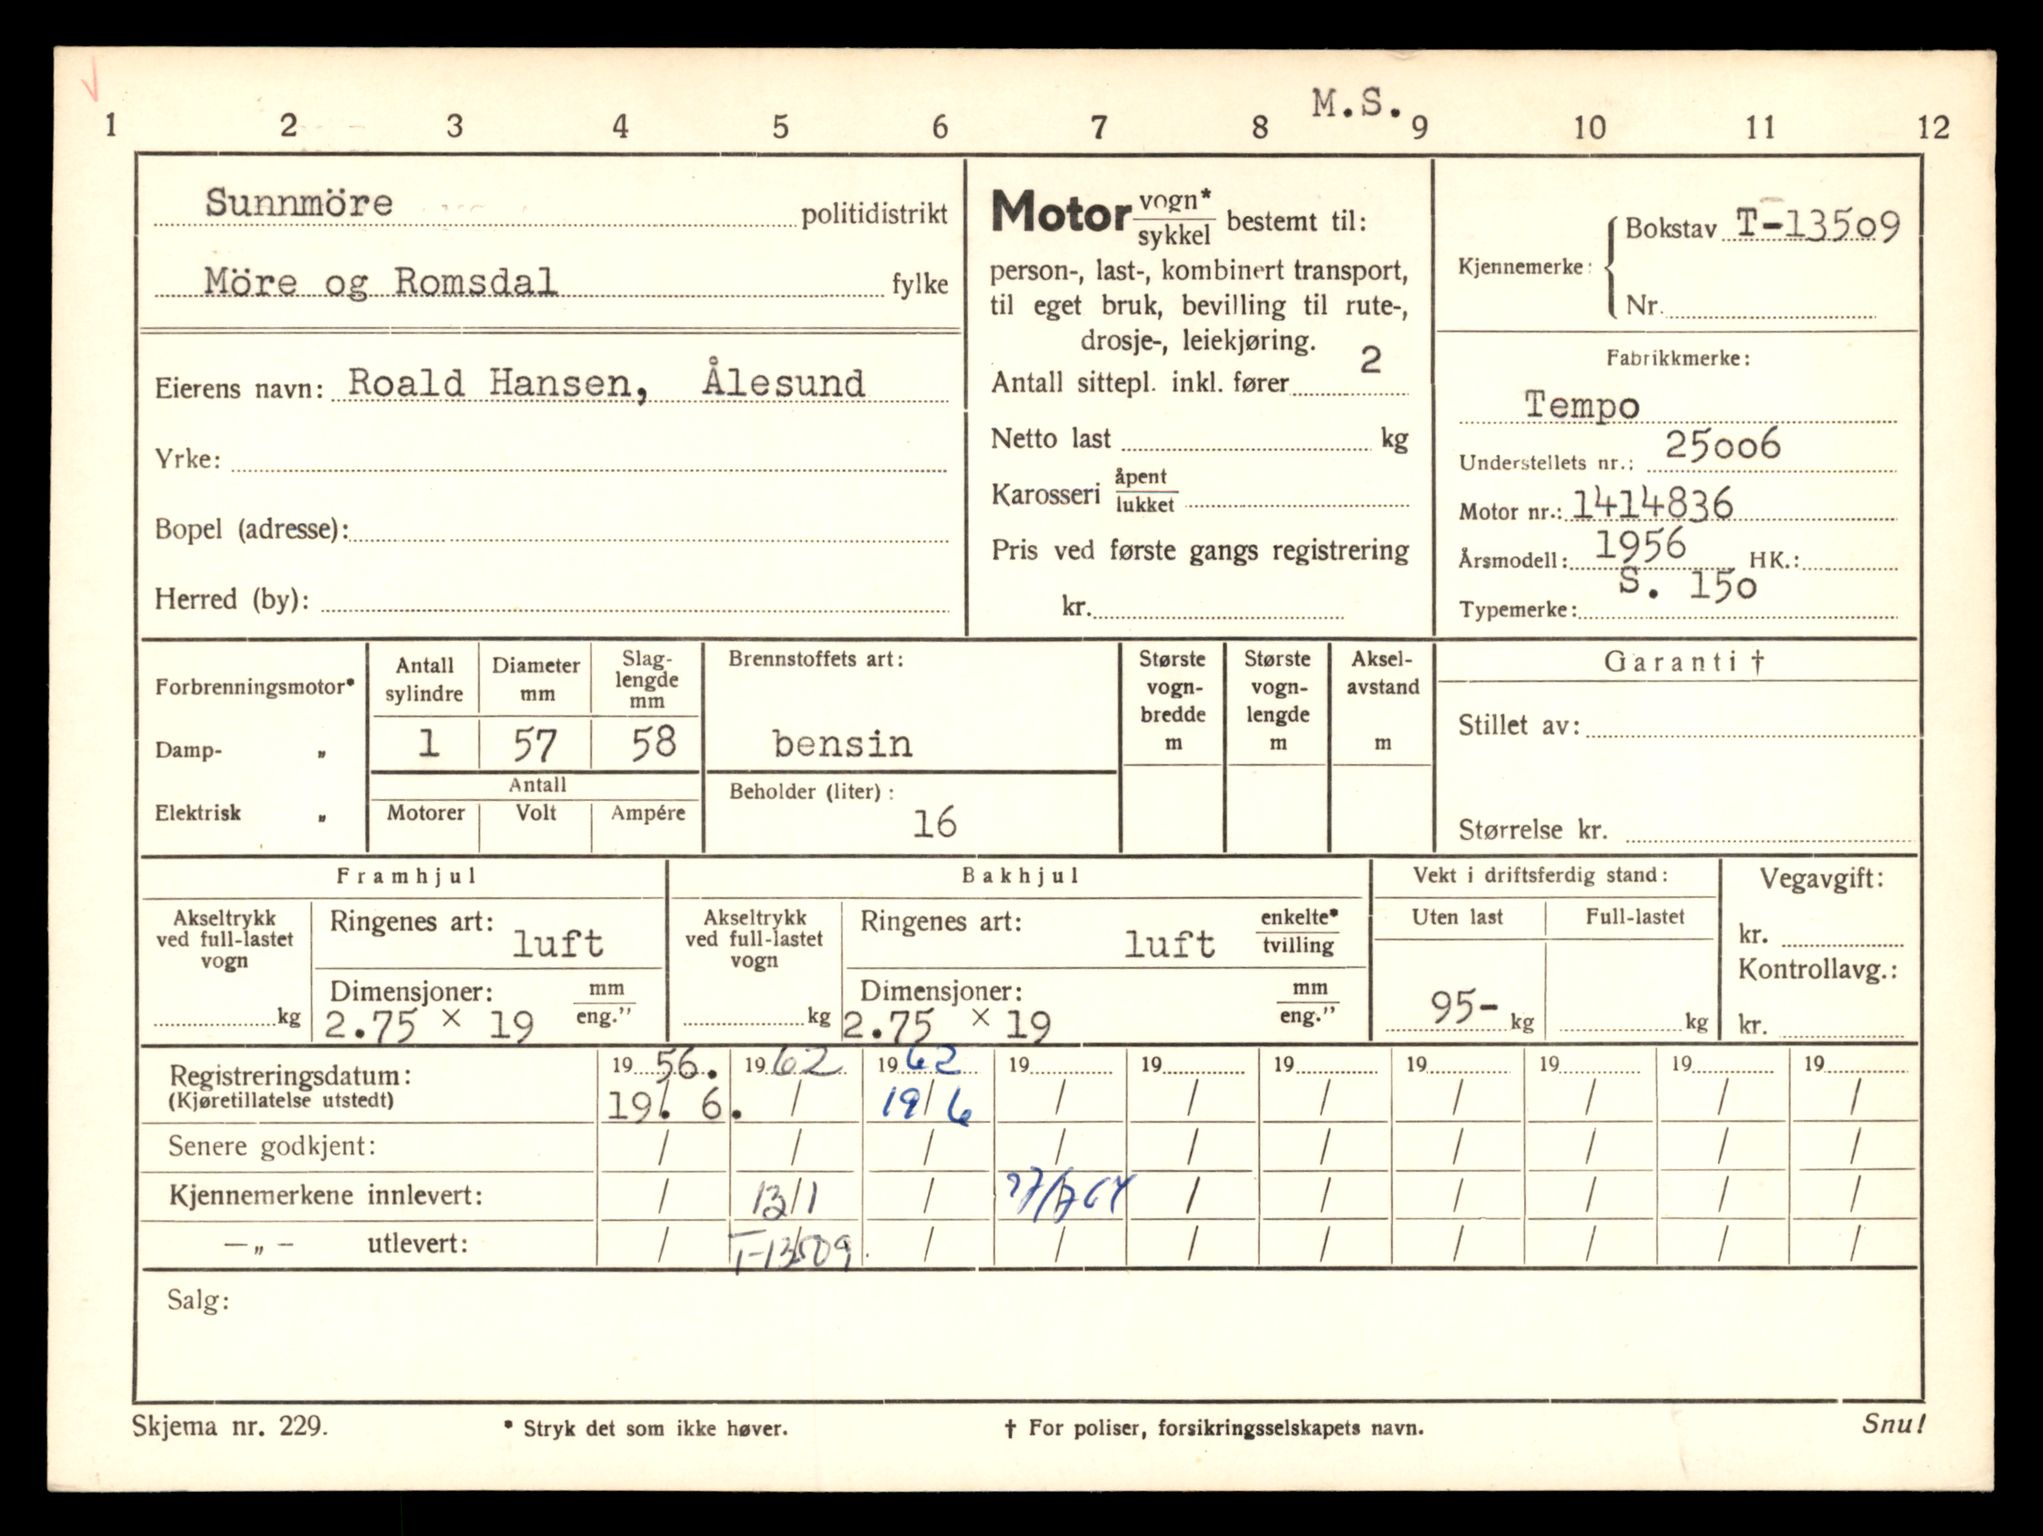 M.S.
1 2 3 4 5 6 7 8 9 10 11 12
Sunnmöre politidistrikt
Möre og Romsdal fylke
Eierens navn: Roald Hansen, Ålesund
Yrke:
Bopel (adresse):
Herred (by):
Motor vogn* / sykkel bestemt til:
person-, last-, kombinert transport,
til eget bruk, bevilling til rute-,
drosje-, leiekjøring.
Antall sittepl. inkl. fører 2
Netto last kg
Karosseri åpent / lukket
Pris ved første gangs registrering
kr.
Kjennemerke: Bokstav T-13509
Nr.
Fabrikkmerke:
Tempo
Understellets nr.: 25006
Motor nr.: 1414836
Årsmodell: 1956 HK.:
Typemerke: S. 150
Forbrenningsmotor*
Damp- „
Elektrisk „
Antall sylindre 1
Diameter mm 57
Slag-lengde mm 58
Antall
Motorer Volt Ampére
Brennstoffets art:
bensin
Beholder (liter):
16
Største vogn-bredde m
Største vogn-lengde m
Aksel-avstand m
Garanti †
Stillet av:
Størrelse kr.
Framhjul
Akseltrykk ved full-lastet vogn
kg
Ringenes art: luft
Dimensjoner: mm / eng."
2.75 × 19
Bakhjul
Akseltrykk ved full-lastet vogn
kg
Ringenes art: luft enkelte* / tvilling
Dimensjoner: mm / eng."
2.75 × 19
Vekt i driftsferdig stand:
Uten last Full-lastet
95- kg kg
Vegavgift:
kr.
Kontrollavg.:
kr.
Registreringsdatum: 19 56. 19 62 19 62 19 19 19 19 19 19 19
(Kjøretillatelse utstedt) 19. 6. / 19/6 / / / / / / /
Senere godkjent: / / / / / / / / / /
Kjennemerkene innlevert: / 13/1 / / / / / / /
— „ — utlevert: / T-13509. / / / / / / / /
Salg:
Skjema nr. 229. * Stryk det som ikke høver. † For poliser, forsikringsselskapets navn. Snu!